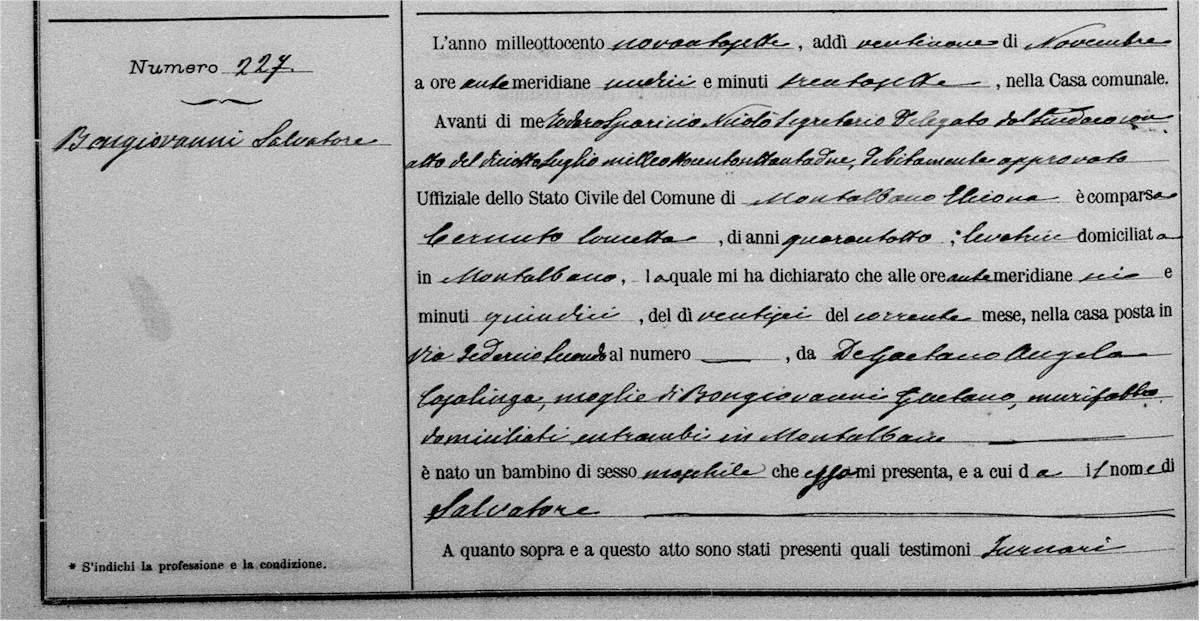 Numero 227.
Bongiovanni Salvatore
* S'indichi la professione e la condizione.
L'anno milleottocento novantasette, addì ventinove di Novembre
a ore antemeridiane undici e minuti trentasette, nella Casa comunale.
Avanti di me Todaro Sparicio Nicolò Segretario Delegato dal Sindaco con
atto del diciotto Luglio milleottocentottantadue, debitamente approvato
Uffiziale dello Stato Civile del Comune di Montalbano Elicona è comparsa
Cernuto Concetta, di anni quarantotto; levatrice domiciliata
in Montalbano, la quale mi ha dichiarato che alle ore antemeridiane sei e
minuti quindici, del dì ventisei del corrente mese, nella casa posta in
Via Federico Secondo al numero —, da De Gaetano Angela
Casalinga, moglie di Bongiovanni Gaetano, murifabbro
domiciliati entrambi in Montalbano
è nato un bambino di sesso maschile che essa mi presenta, e a cui da il nome di
Salvatore
A quanto sopra e a questo atto sono stati presenti quali testimoni Furnari